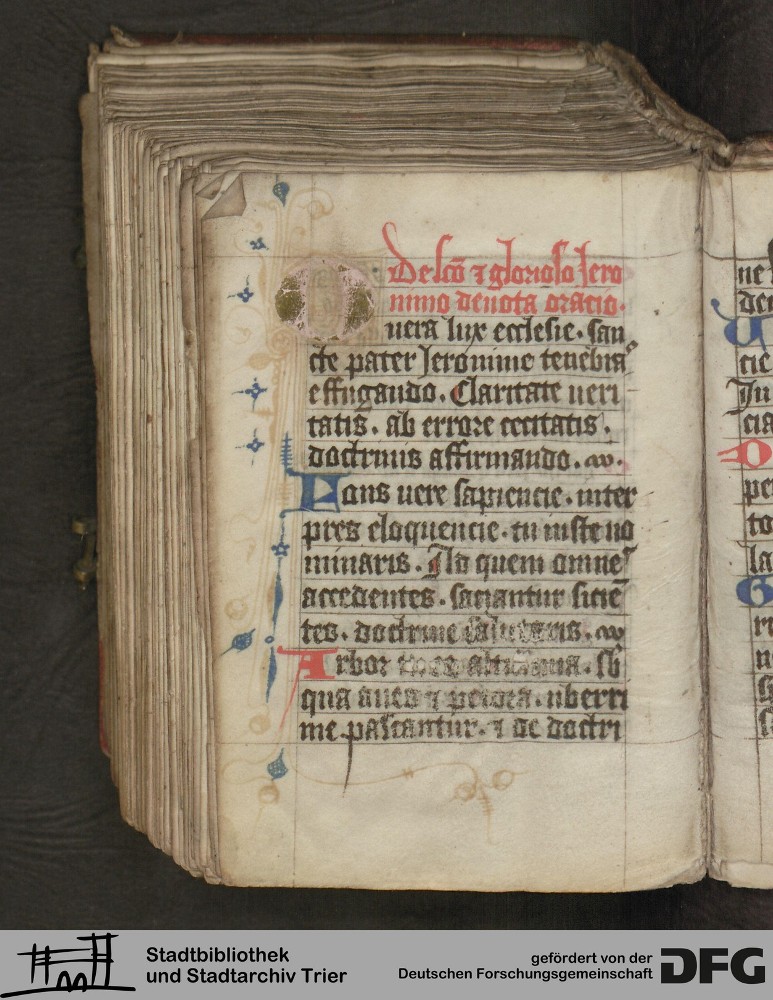 De scō ⁊ glorioso Jero
nimo deuota oracio.
O uera lux ecclesie. san
cte pater Jeronime tenebras
effugando. Claritate ueri
tatis. ab errore cecitatis.
doctrinis affirmando.
Fons uere sapiencie. inter
pres eloquencie. tu iuste no
minaris. Ad quem omnes
accedentes. saciantur siciē
tes. doctrine salutaris.
Arbor altissima. sb
qua aues ⁊ pecora. uberri
me pascantur. ⁊ de doctri
ne
cie
Ju
cia
O
pe
to
la
G
Stadtbibliothek
und Stadtarchiv Trier
gefördert von der
Deutschen Forschungsgemeinschaft
DFG